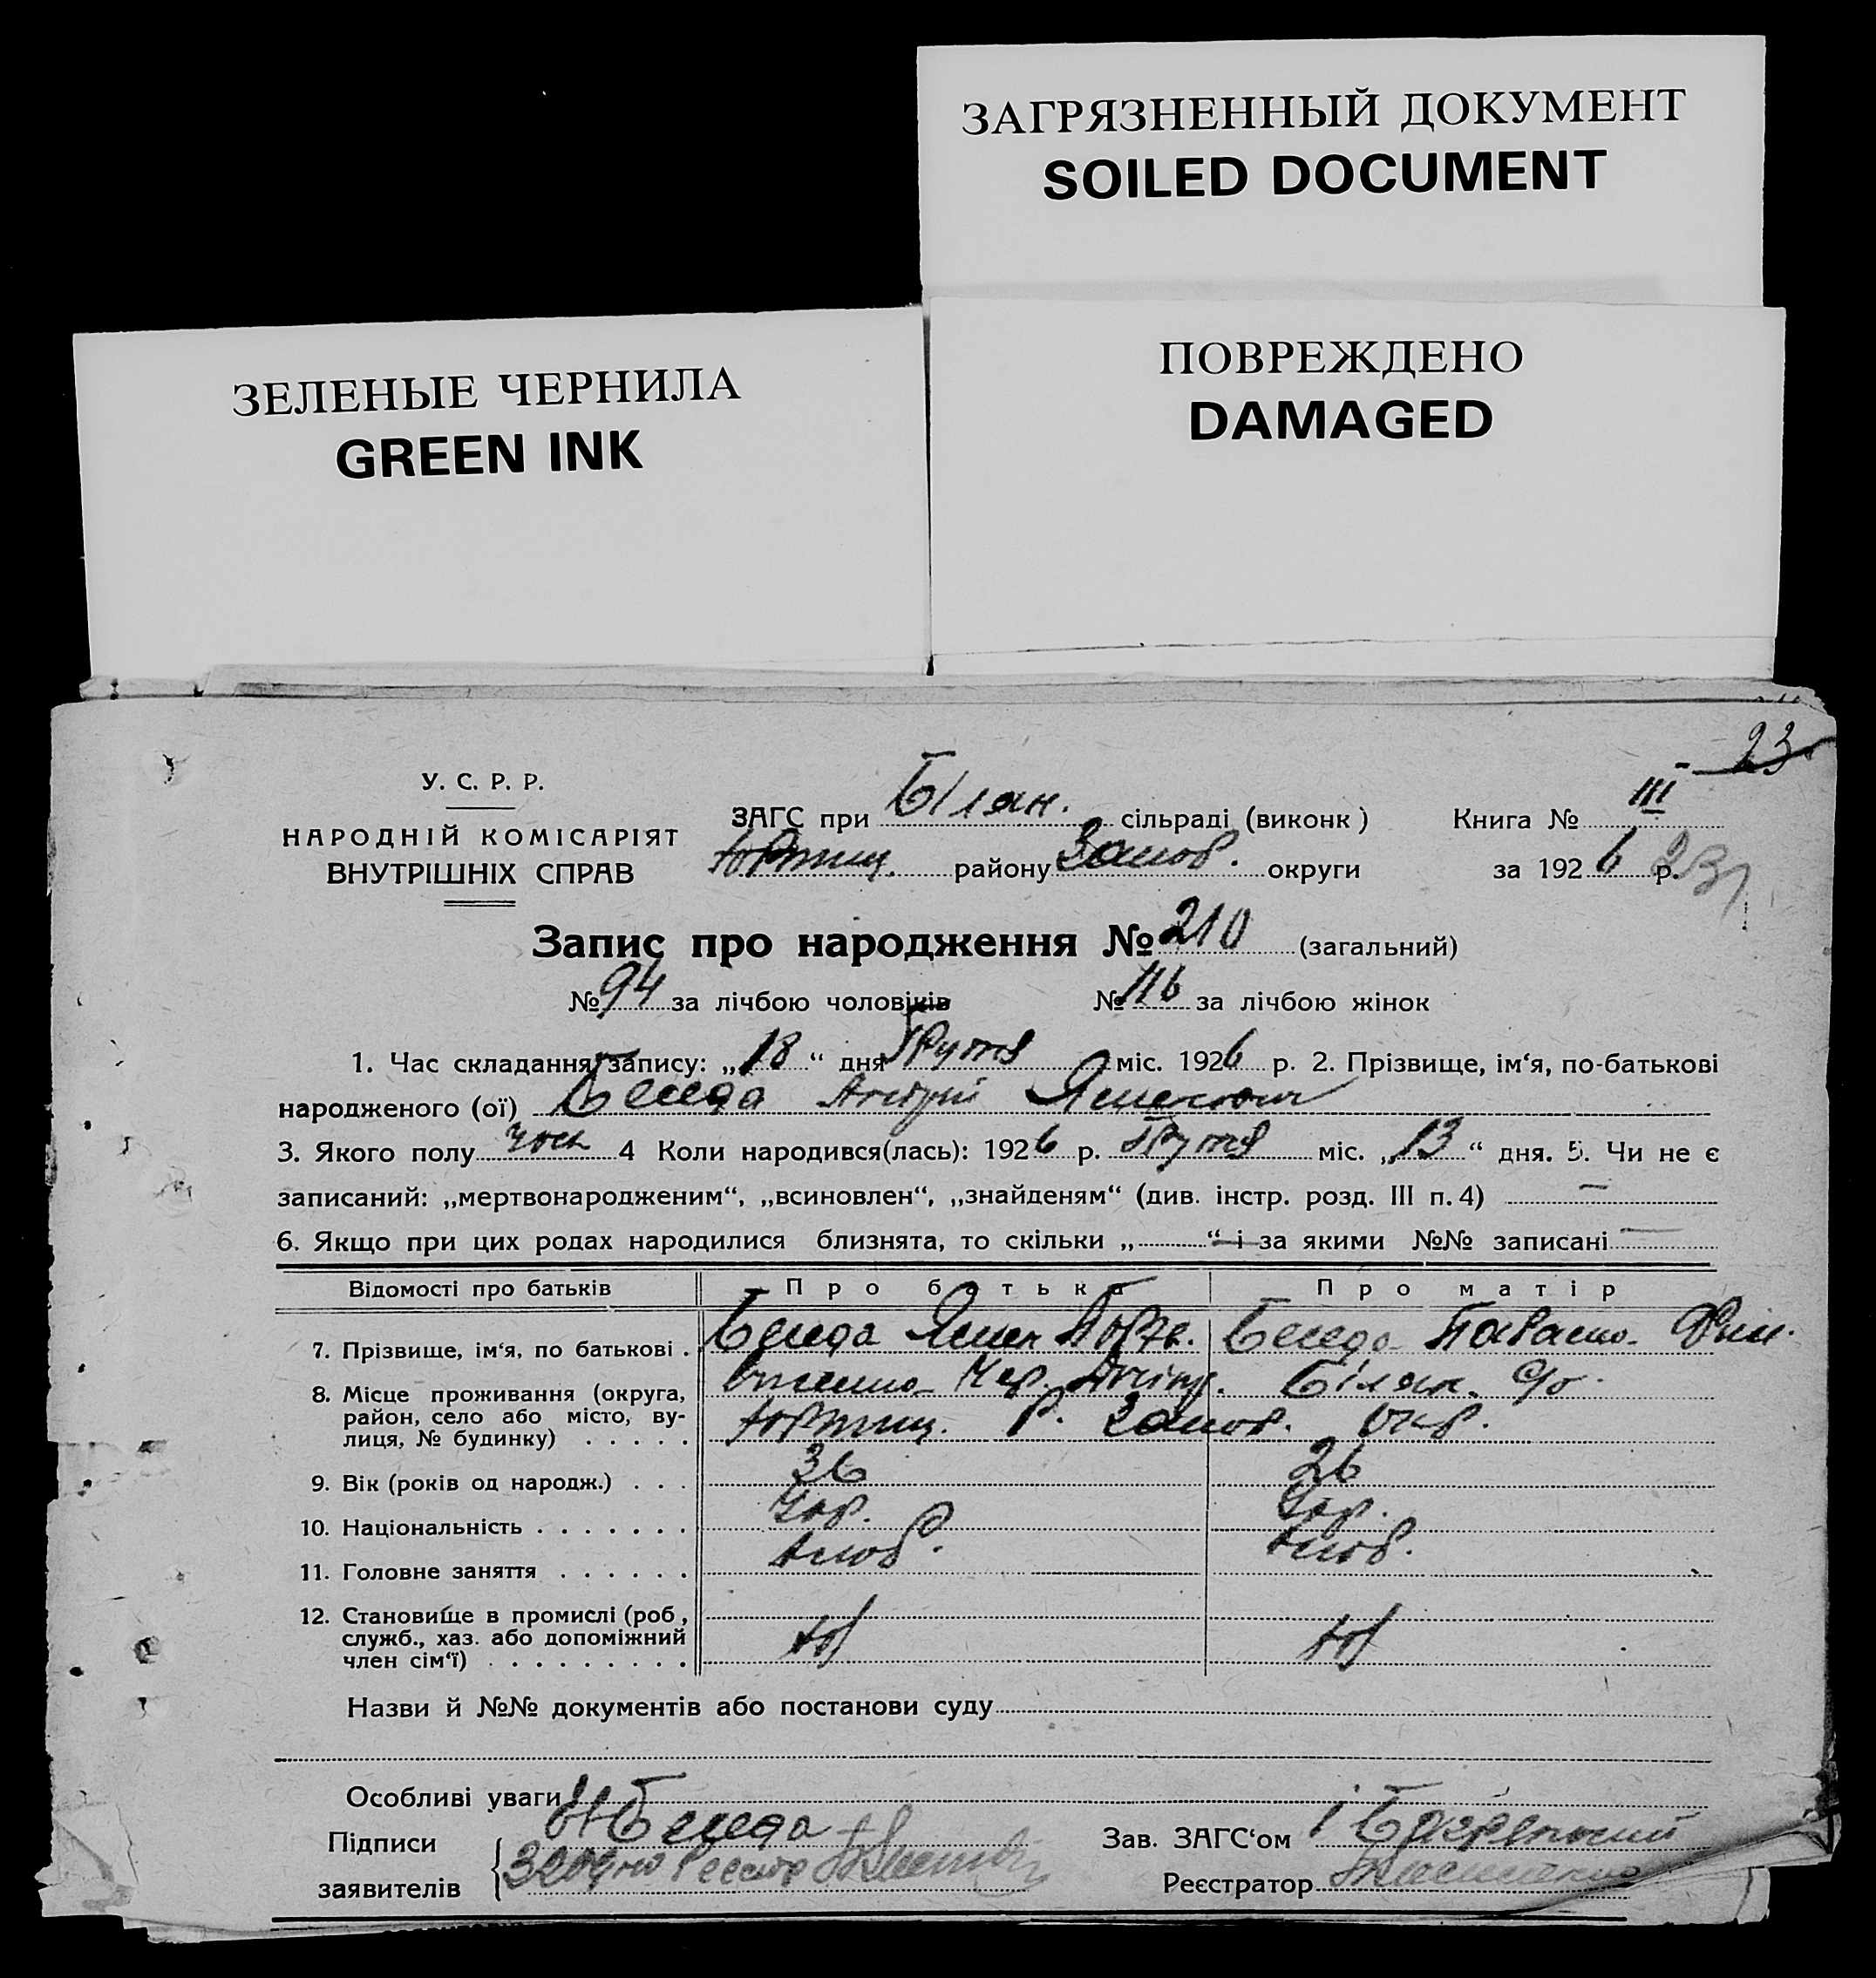 ЗАГРЯЗНЕННЫЙ ДОКУМЕНТ
SOILED DOCUMENT
ЗЕЛЕНЫЕ ЧЕРНИЛА
GREEN INK
ПОВРЕЖДЕНО
DAMAGED
23
У. С. Р. Р.
НАРОДНІЙ КОМІСАРІЯТ
ВНУТРІШНІХ СПРАВ
ЗАГС при Білян. сільраді (виконк)
району Запор. округи
Книга № III
за 1926 р.
Запис про народження № 210 (загальний)
№ 94 за лічбою чоловіків № 116 за лічбою жінок
1. Час складання запису: „18“ дня Грудня міс. 1926 р. 2. Прізвище, ім‘я, по-батькові
народженого (ої) Беседа
3. Якого полу 4 Коли народився(лась): 1926 р. Грудня міс. „13“ дня. 5. Чи не є
записаний: „мертвонародженим“, „всиновлен“, „знайденям“ (див. інстр. розд. III п. 4) —
6. Якщо при цих родах народилися близнята, то скільки „ “ і за якими №№ записані —
Відомості про батьків Про батька Про матір
7. Прізвище, ім‘я, по батькові . Беседа Беседа
8. Місце проживання (округа, Білян.
район, село або місто, ву- Р. Запор. Окр.
лиця, № будинку) . . . . .
9. Вік (років од народж.) . . . 36 26
10. Національність . . . . . . . Укр. Укр.
11. Головне заняття . . . . . . Хліб. Хліб.
12. Становище в промислі (роб.,
служб., хаз. або допоміжний
член сім‘ї) . . . . . . . . .
Назви й №№ документів або постанови суду
Особливі уваги
Підписи Беседа Зав. ЗАГС‘ом
заявителів Реєстратор